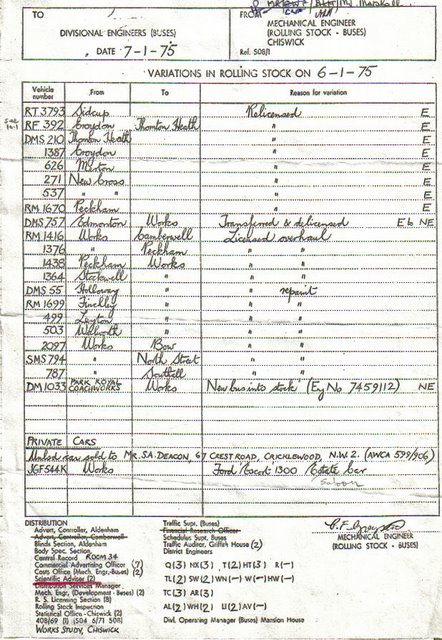 TO
DIVISIONAL ENGINEERS (BUSES)
DATE 7-1-75
FROM
MECHANICAL ENGINEER
(ROLLING STOCK - BUSES)
CHISWICK
Ref. 508/1
VARIATIONS IN ROLLING STOCK ON 6-1-75
Vehicle number From To Reason for variation
RT 3793 Sidcup Relicensed E
RF 392 Croydon Thornton Heath " E
DMS 210 Thornton Heath " E
1387 Croydon " E
626 Merton " E
271 New Cross " E
537 " " " E
RM 1670 Peckham " E
DMS 757 Edmonton Works Transferred & delicensed E b NE
RM 1416 Works Camberwell Licensed overhaul
1376 " Peckham " "
1438 Peckham Works " "
1364 Stockwell " " "
DMS 55 Holloway " " repaint
RM 1699 Finchley " " "
499 Leyton " " "
503 Walworth " " "
2097 Works Bow " "
SMS 794 " North Street " "
787 " Southall " "
DM 1033 PARK ROYAL COACHWORKS Works 'New bus into stock' (Eng No 7459112) NE
PRIVATE CARS
sold to MR. S.A. DEACON, 67 CREST ROAD, CRICKLEWOOD, N.W.2. (AWCA 599/906)
JGF 544K Works Ford Escort 1300 Estate Car
Saloon
DISTRIBUTION
Advert. Controller, Aldenham
Advert. Controller, Camberwell
Blinds Section, Aldenham
Body Spec. Section,
Central Record ROOM 34
Commercial Advertising Officer (7)
Costs Office (Mech. Engr. Buses) (2)
Scientific Adviser (2)
Distribution Services Manager
Mech. Engr. (Development - Buses) (2)
R. S. Licensing Section (8)
Rolling Stock Inspection
Statistical Office - Chiswick (2)
408/69 (1) (504 6/71 508)
WORKS STUDY, CHISWICK
Traffic Supt. (Buses)
Financial Research Officer
Schedules Supt. Buses
Traffic Auditor, Griffith House (2)
District Engineers
Q (3) NX (3) T (2) HT (3) R (-)
TL (2) SW (2) WN (-) W (-) HW (-)
TC (3) AR (3)
AL (2) WH (2) U (2) AV (-)
Divl. Operating Manager (Buses) Mansion House
MECHANICAL ENGINEER
(ROLLING STOCK - BUSES)